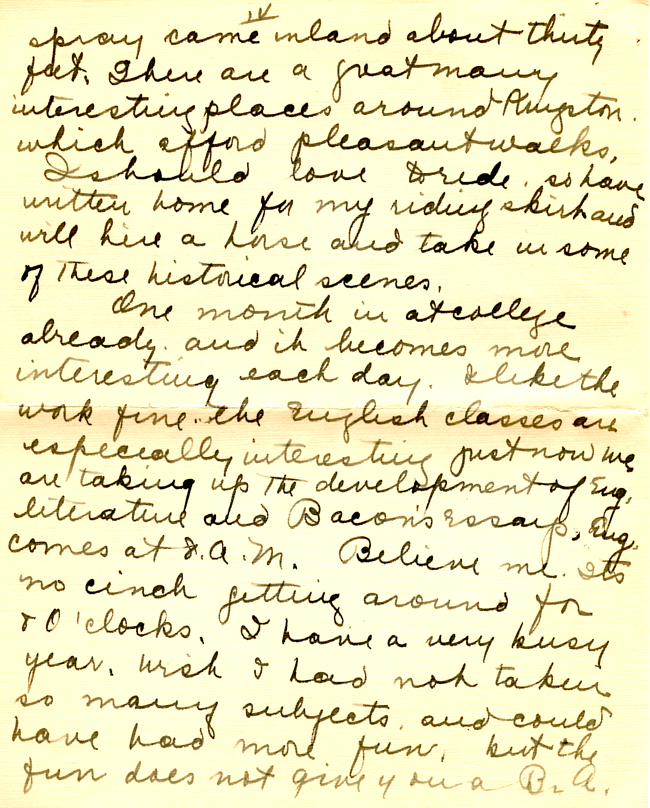 IV
spray came inland about thirty
feet. There are a great many
interesting places around Kingston.
which afford pleasant walks.
I should love to ride. so have
written home for my riding skirt and
will hire a horse and take in some
of these historical scenes.
One month in at college
already. and it becomes more
interesting each day. I like the
work fine. the English classes are
especially interesting just now we
are taking up the development of Eng.
literature and Bacon's Essays, Eng.
comes at 8. A. M. Believe me. Its
no cinch getting around for
8 O'clocks. I have a very busy
year. wish I had not taken
so many subjects. and could
have had more fun. but the
fun does not give you a B. A.